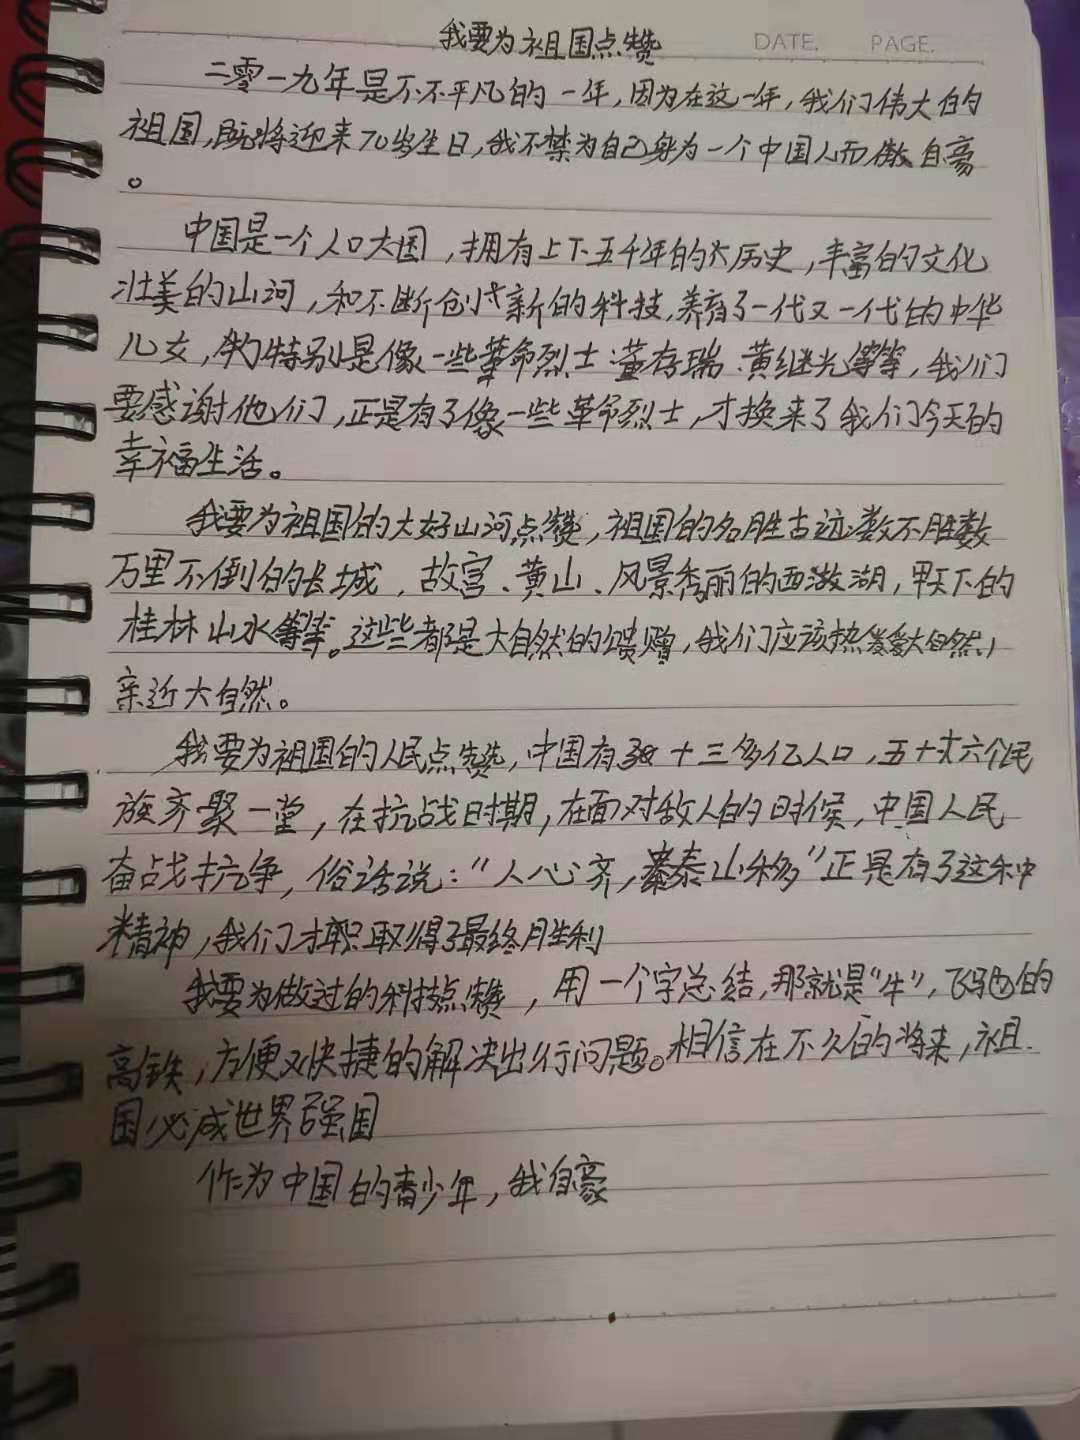 我要为祖国点赞
DATE. PAGE.
二零一九年是不不平凡的一年，因为在这一年，我们伟大的
祖国，既将迎来70岁生日，我不禁为自己身为一个中国人而傲自豪
。
中国是一个人口大国，拥有上下五千年的大历史，丰富的文化
壮美的山河，和不断创新的科技，养育了一代又一代的中华
儿女，特别是像一些革命烈士：董存瑞、黄继光等等，我们
要感谢他们，正是有了像一些革命烈士，才换来了我们今天的
幸福生活。
我要为祖国的大好山河点赞，祖国的名胜古迹数不胜数
万里不倒的长城、故宫、黄山、风景秀丽的西湖，甲天下的
桂林山水等等。这些都是大自然的馈赠，我们应该热爱大自然，
亲近大自然。
我要为祖国的人民点赞，中国有十三多亿人口，五十六个民
族齐聚一堂，在抗战时期，在面对敌人的时候，中国人民
奋战抗争，俗话说：“人心齐，泰山移”正是有了这种
精神，我们才取得了最终胜利
我要为做过的科技点赞，用一个字总结，那就是“牛”，飞驰的
高铁，方便又快捷的解决出行问题。相信在不久的将来，祖
国必成世界强国
作为中国的青少年，我自豪